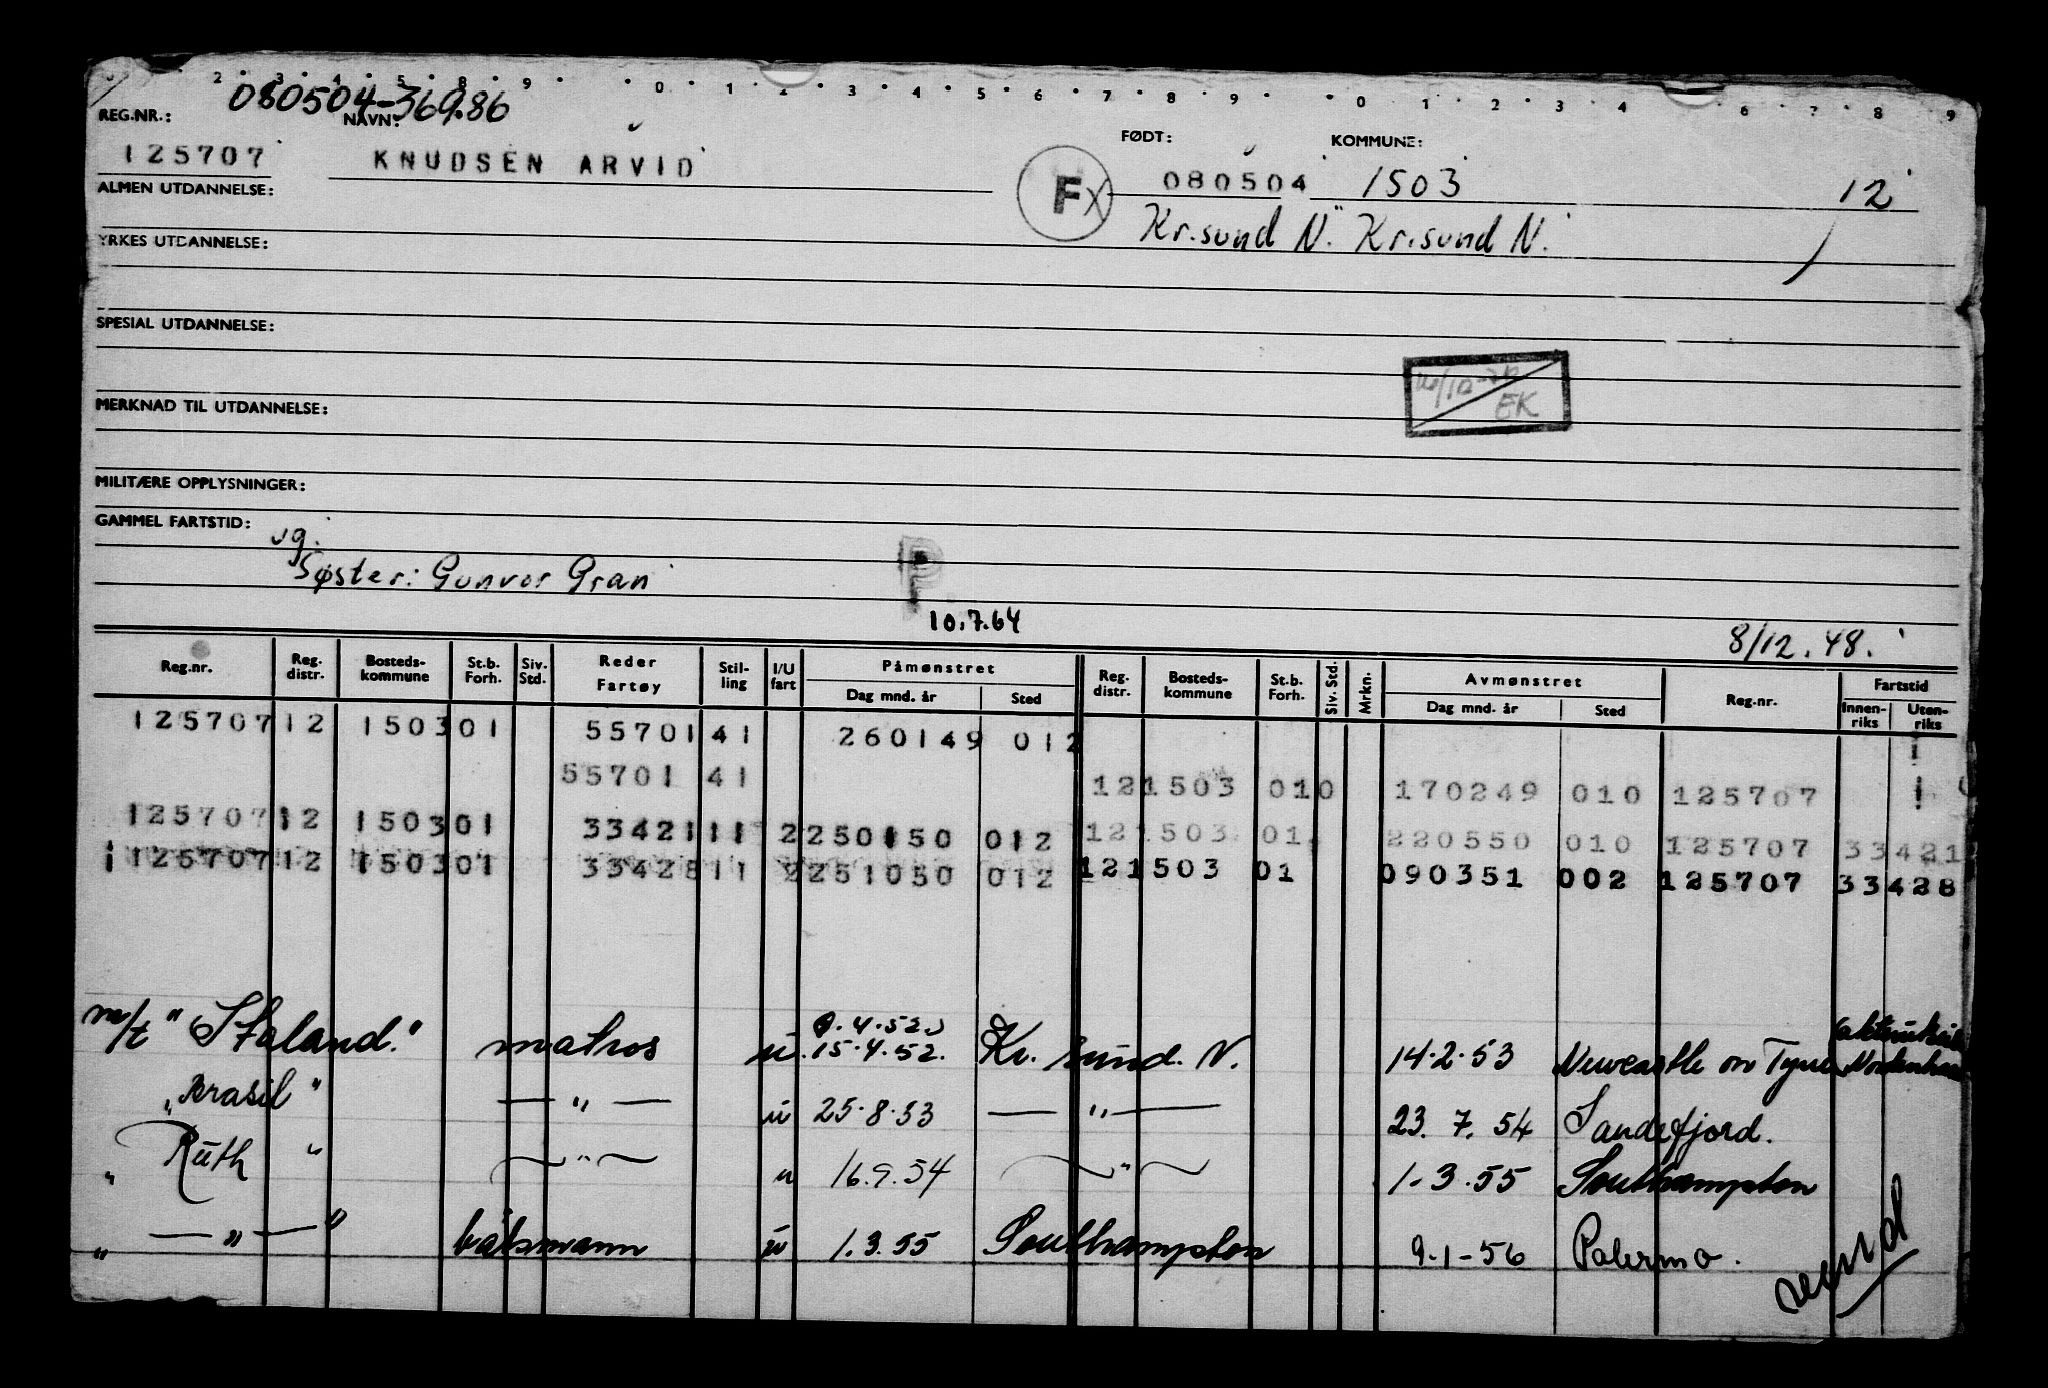 2 3 4 5 8 9 0 1 2 3 4 5 6 7 8 9 0 1 2 3 4 6 7 8 9
080504-36986
REG.NR.: NAVN: FØDT: KOMMUNE:
125707 KNUDSEN ARVID Fx 080504 1503 12
ALMEN UTDANNELSE: Kr.sund N. Kr.sund N.
YRKES UTDANNELSE:
SPESIAL UTDANNELSE:
EK
MERKNAD TIL UTDANNELSE:
MILITÆRE OPPLYSNINGER:
GAMMEL FARTSTID:
ug.
Søster: Gunvor Gran P
10.7.64 8/12.48.
Reg.nr. Reg. distr. Bosteds-kommune St.b. Forh. Siv. Std. Reder Fartøy Stil-ling I/U fart Påmønstret Dag mnd. år Sted Reg. distr. Bosteds-kommune St.b. Forh. Siv. Std. Mrkn. Avmønstret Dag mnd. år Sted Reg.nr. Fartstid Innen-riks Uten-riks
125707 12 1503 01 55701 41 260149 012 1
55701 41 12 1503 01 0 170249 010 125707 1
125707 12 1503 01 33421 11 2 250150 012 12 1503 01 220550 010 125707 33421
1 125707 12 1503 01 33428 11 2 251050 012 12 1503 01 090351 002 125707 33428
9.4.52.
m/t "Staland." matros u. 15.4.52. Kr. sund. N. 14.2.53 Newcastle on Tyne
„ Brasil " — " — u 25.8.53 — " — 23. 7. 54 Sandefjord.
„ Ruth " — " — u 16.9.54 — " — 1-3.55 Southampton
„ — " — " båtsmann u 1.3.55 Southampton 9-1-56 Palermo.
vend